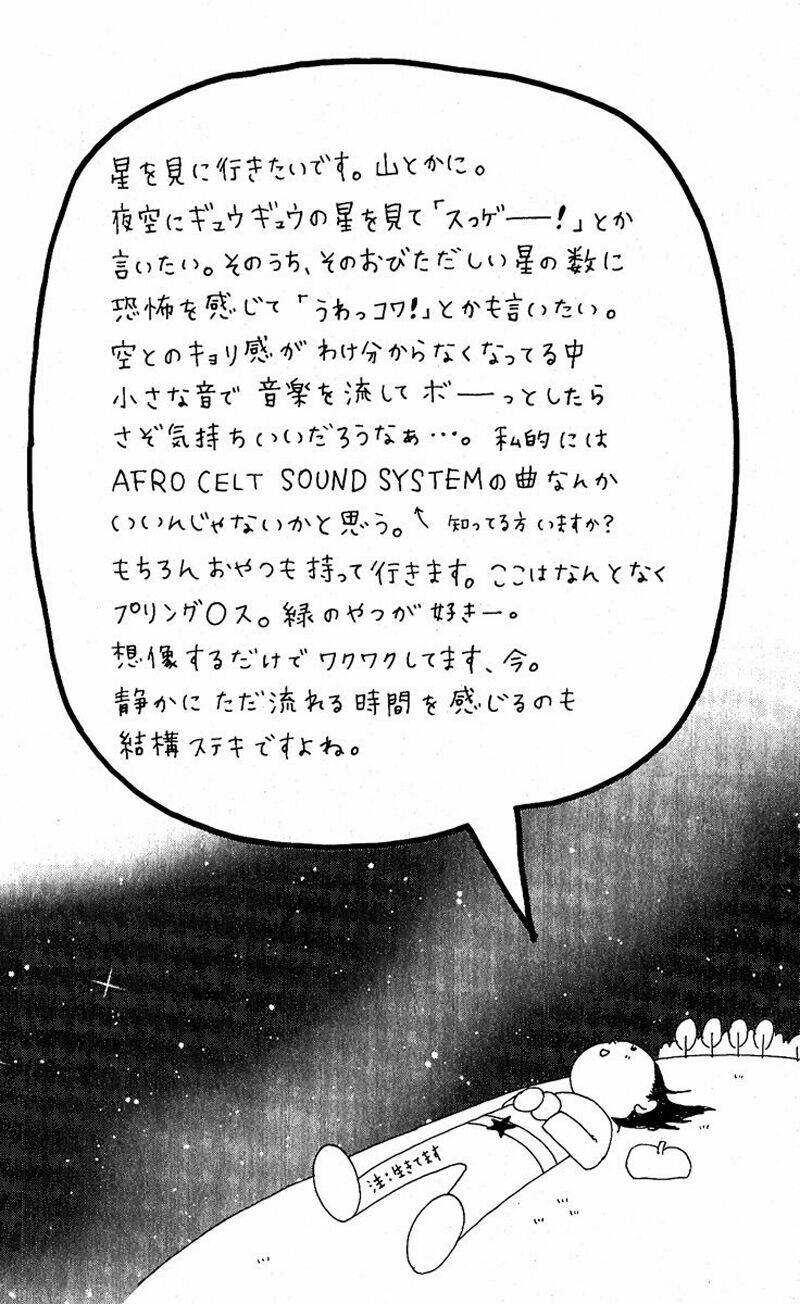 星を見に行きたいです。山とかに。
夜空にギュウギュウの星を見て「スっゲー!」とか
言いたい。そのうち、そのおびただしい星の数に
恐怖を感じて「うわっコワ!」とかも言いたい。
空とのキョリ感がわけ分からなくなってる中
小さな音で 音楽を流して ボーっとしたら
さぞ気持ちいいだろうなぁ…。 私的には
AFRO CELT SOUND SYSTEMの曲なんか
いいんじゃないかと思う。↖ 知ってる方いますか?
もちろんおやつも持って行きます。ここはなんとなく
プリング○ス。緑のやつが好きー。
想像するだけでワクワクしてます、今。
静かに ただ流れる時間を感じるのも
結構ステキですよね。
注:生きてます